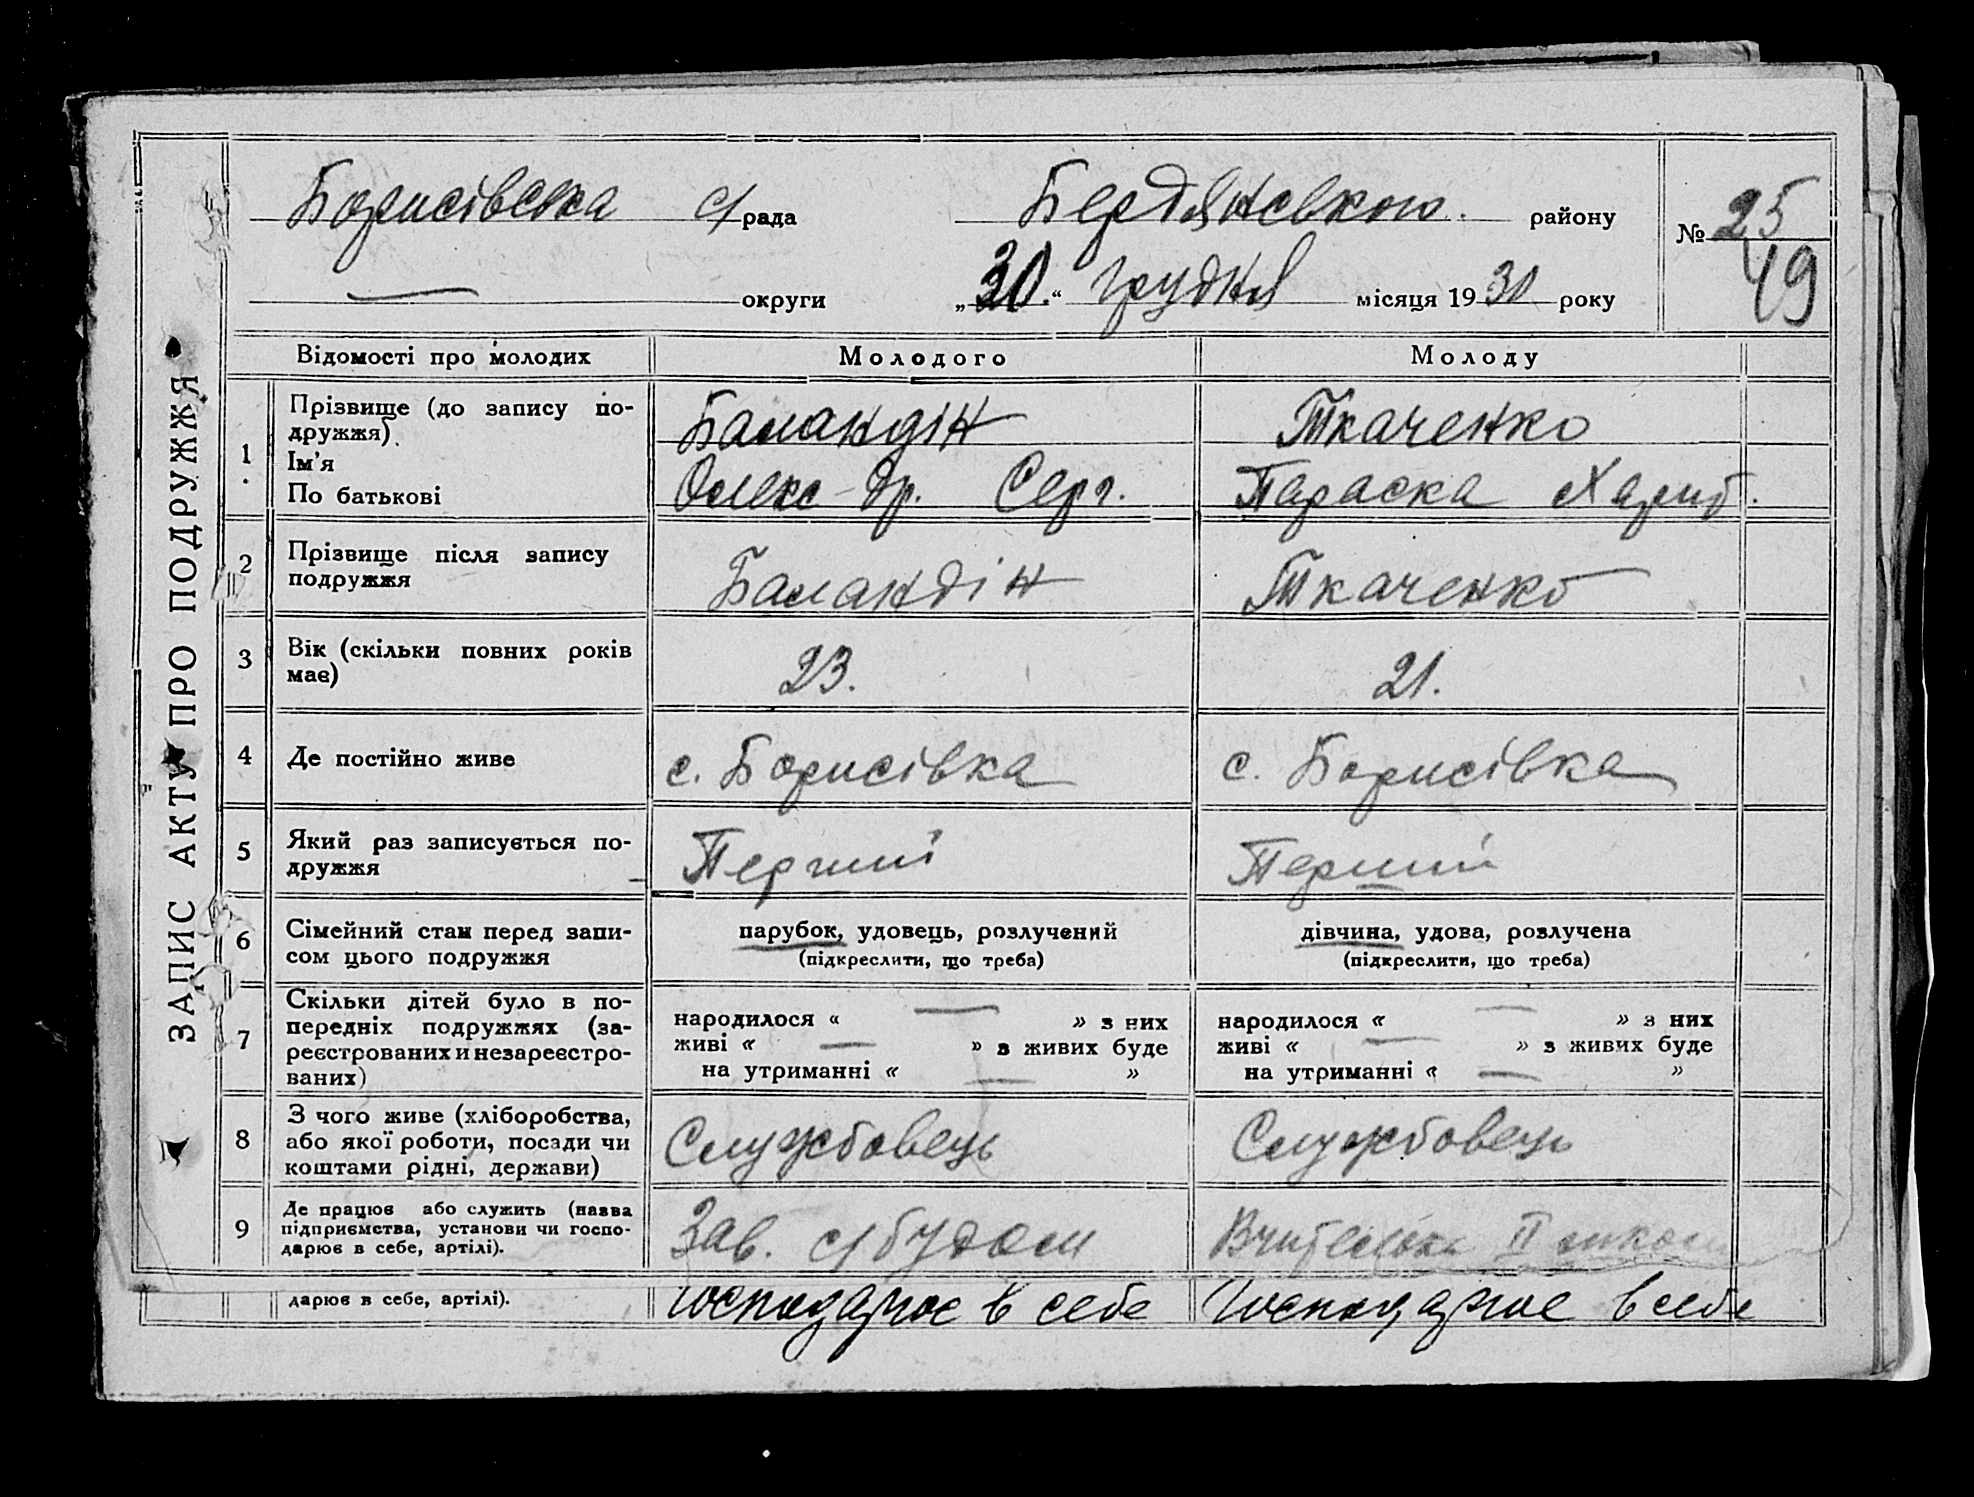 ЗАПИС АКТУ ПРО ПОДРУЖЖЯ
Борисівська с/рада Бердянського району № 25
49
округи „30“ грудня місяця 1930 року
Відомості про молодих Молодого Молоду
1 Прізвище (до запису по-
дружжя) Баландін Ткаченко
Ім'я
По батькові Олекс-др. Серг. Параска Харит.
2 Прізвище після запису
подружжя Баландін Ткаченко
3 Вік (скільки повних років
має) 23. 21.
4 Де постійно живе с. Борисівка с. Борисівка
5 Який раз записується по-
дружжя Перший Перший
6 Сімейний стан перед запи-
сом цього подружжя
парубок, удовець, розлучений дівчина, удова, розлучена
(підкреслити, що треба) (підкреслити, що треба)
7 Скільки дітей було в по-
передніх подружжях (за-
реєстрованих и незареєстро-
ваних)
народилося « — » з них народилося « — » з них
живі « — » з живих буде живі « — » з живих буде
на утриманні « — » на утриманні « — »
8 З чого живе (хліборобства,
або якої роботи, посади чи
коштами рідні, держави) Службовець Службовець
9 Де працює або служить (назва
підприємства, установи чи госпо-
дарює в себе, артілі). Зав. с/будом Вчителька II
дарює в себе, артілі). Господарює в себе Господарює в себе